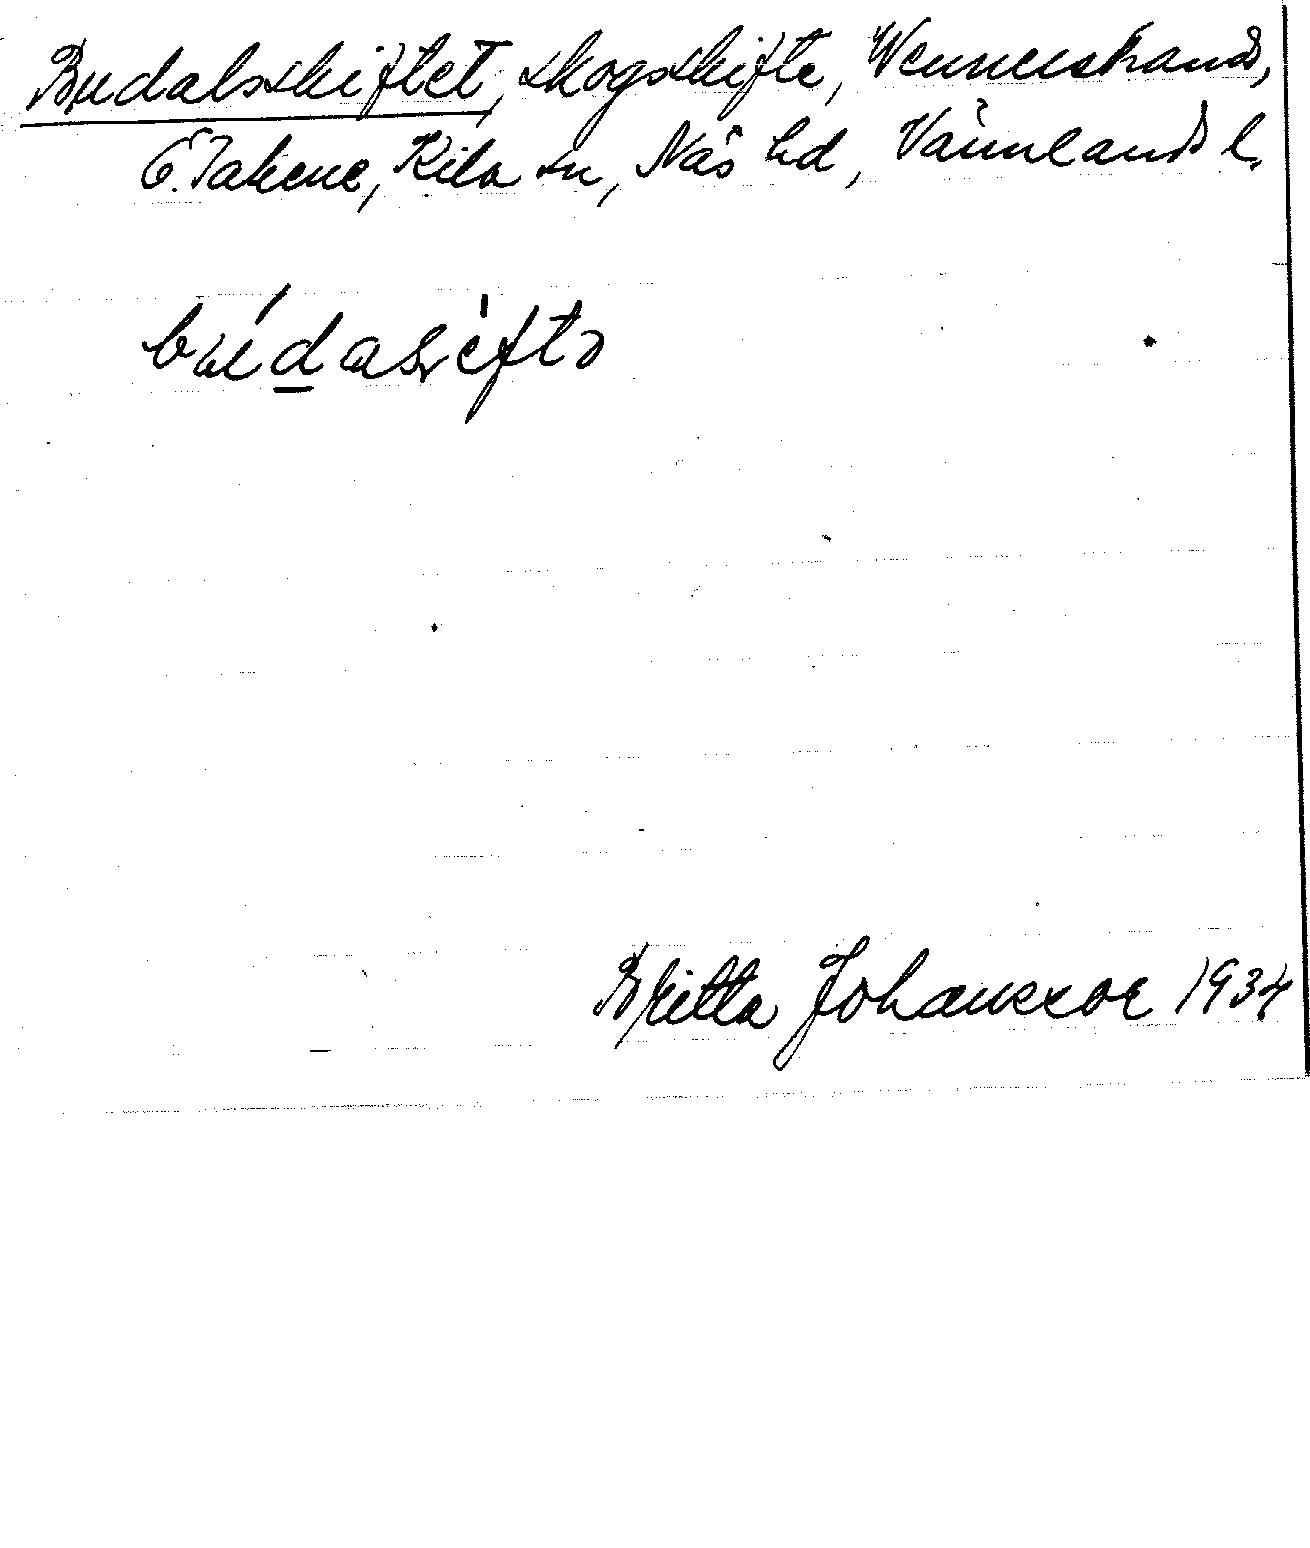 Budalsskiftet, skogsskifte, Wennerstrand,
Ö. Takene, Kila sn, Näs hd, Värmlands l.
Britta Johansson 1934